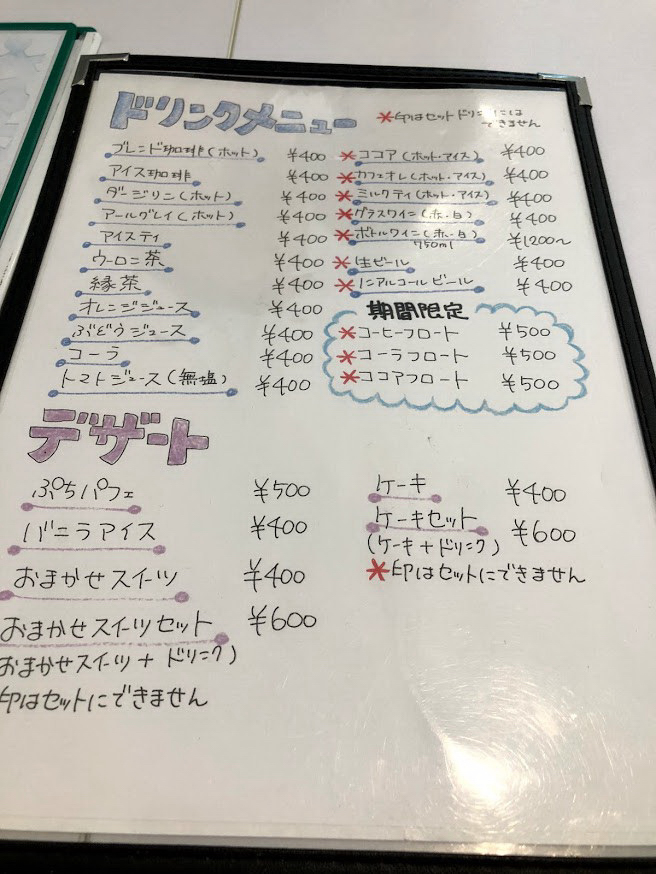 ドリンクメニュー
*印はセットドリンクには
できません
ブレンド珈琲(ホット) ¥400
アイス珈琲 ¥400
ダージリン(ホット) ¥400
アールグレイ(ホット) ¥400
アイスティ ¥400
ウーロン茶 ¥400
緑茶 ¥400
オレンジジュース ¥400
ぶどうジュース ¥400
コーラ ¥400
トマトジュース(無塩) ¥400
*ココア(ホット・アイス) ¥400
*カフェオレ(ホット・アイス) ¥400
*ミルクティ(ホット・アイス) ¥400
*グラスワイン(赤・白) ¥400
*ボトルワイン(赤・白) ¥1200~
750ml
*生ビール ¥400
*ノンアルコールビール ¥400
期間限定
*コーヒーフロート ¥500
*コーラフロート ¥500
*ココアフロート ¥500
デザート
ぷちパフェ ¥500
バニラアイス ¥400
おまかせスイーツ ¥400
おまかせスイーツセット ¥600
おまかせスイーツ+ドリンク)
印はセットにできません
ケーキ ¥400
ケーキセット ¥600
(ケーキ+ドリンク)
*印はセットにできません